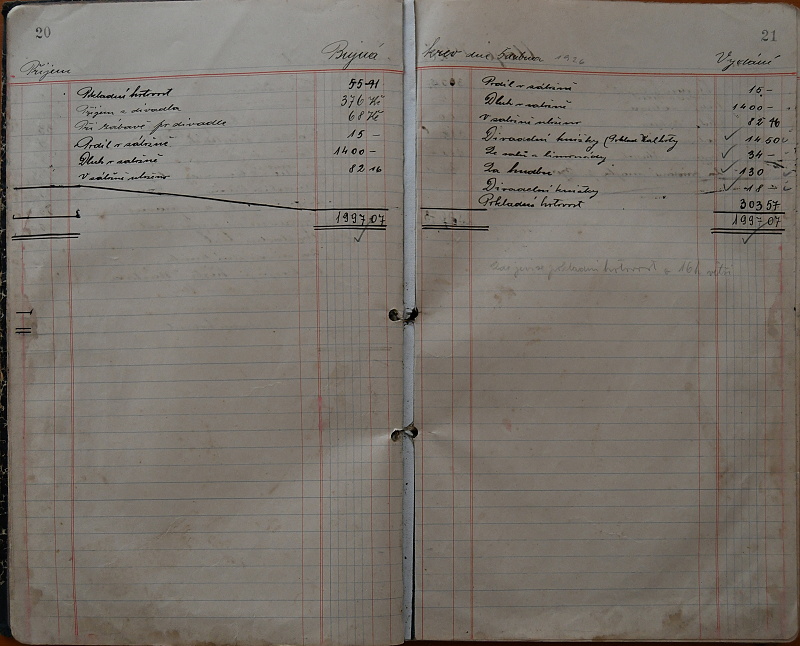 20
Bujná
Příjem
Pokladní hotovost 55 41
Příjem z divadla 376 Kč
Při zábavě po divadle 68 Kč
Podíl v záložně 15 –
Vklad v záložně 1400 –
V záložně uloženo 82 16
1997 07
21
krev dne 1926
Vydání
Podíl v záložně 15,–
Vklad v záložně 1400 –
V záložně uloženo 82 16
Divadelní knížky 14 50
Za a limonády 34 –
Za hudbu 130
Divadelní knížky 18 –
Pokladní hotovost 303 57
1997 07
pokladní hotovost o 16h